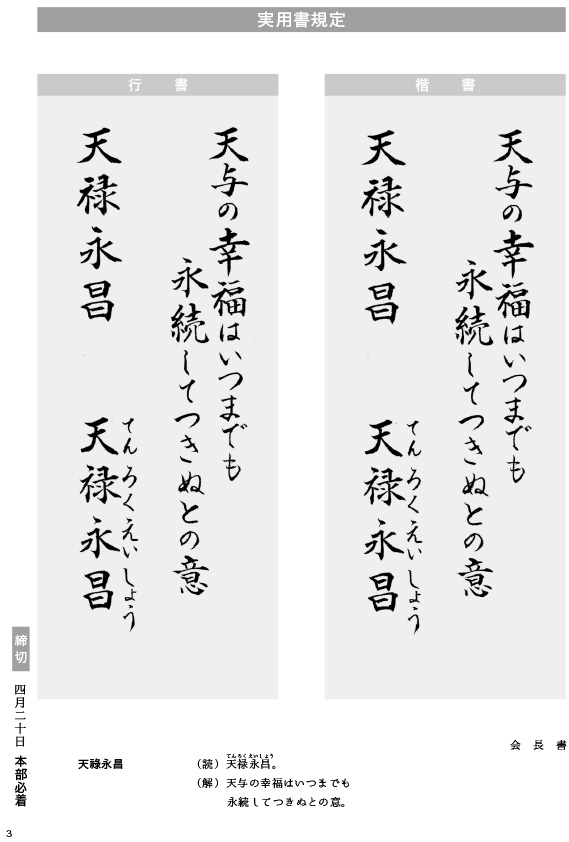 実用書規定
楷　書
天与の幸福はいつまでも
永続してつきぬとの意
てん ろく えい しょう
天禄永昌　天禄永昌
行　書
天与の幸福はいつまでも
永続してつきぬとの意
てん ろく えい しょう
天禄永昌　天禄永昌
会長書
天祿永昌
（読）天禄永昌。
てんろくえいしょう
（解）天与の幸福はいつまでも
永続してつきぬとの意。
締切
四月二十日 本部必着
3